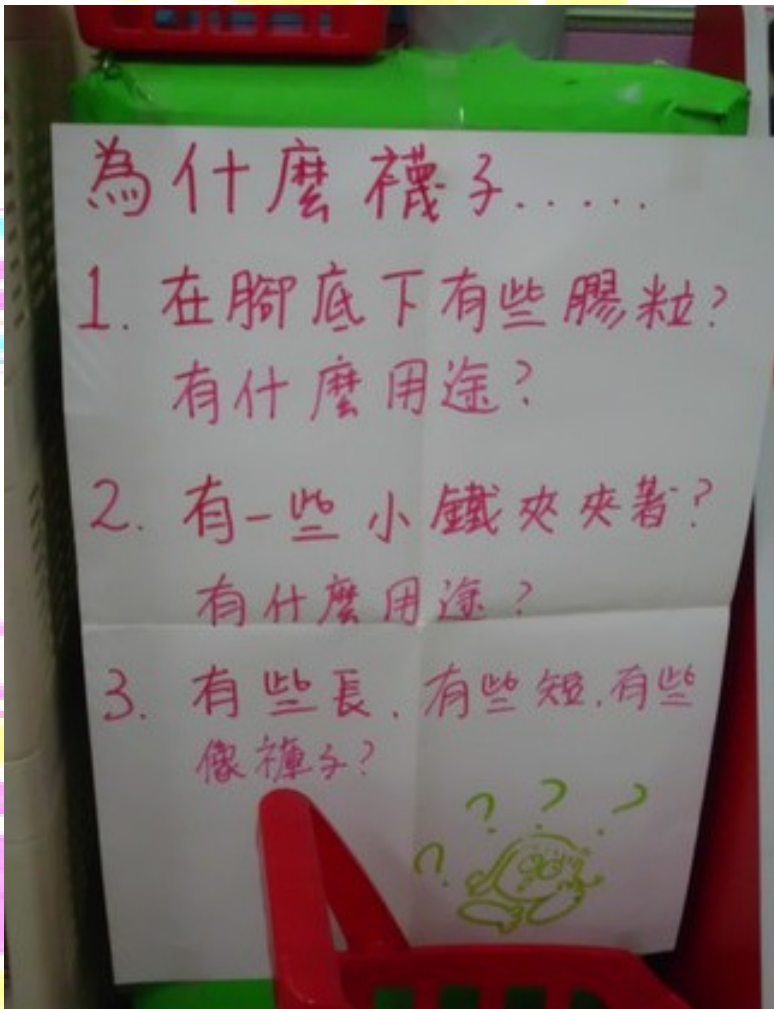 為什麼襪子.....
1. 在腳底下有些膠粒?
有什麼用途?
2. 有一些小鐵夾夾著?
有什麼用途?
3. 有些長、有些短、有些
像褲子?
? ? ? ?